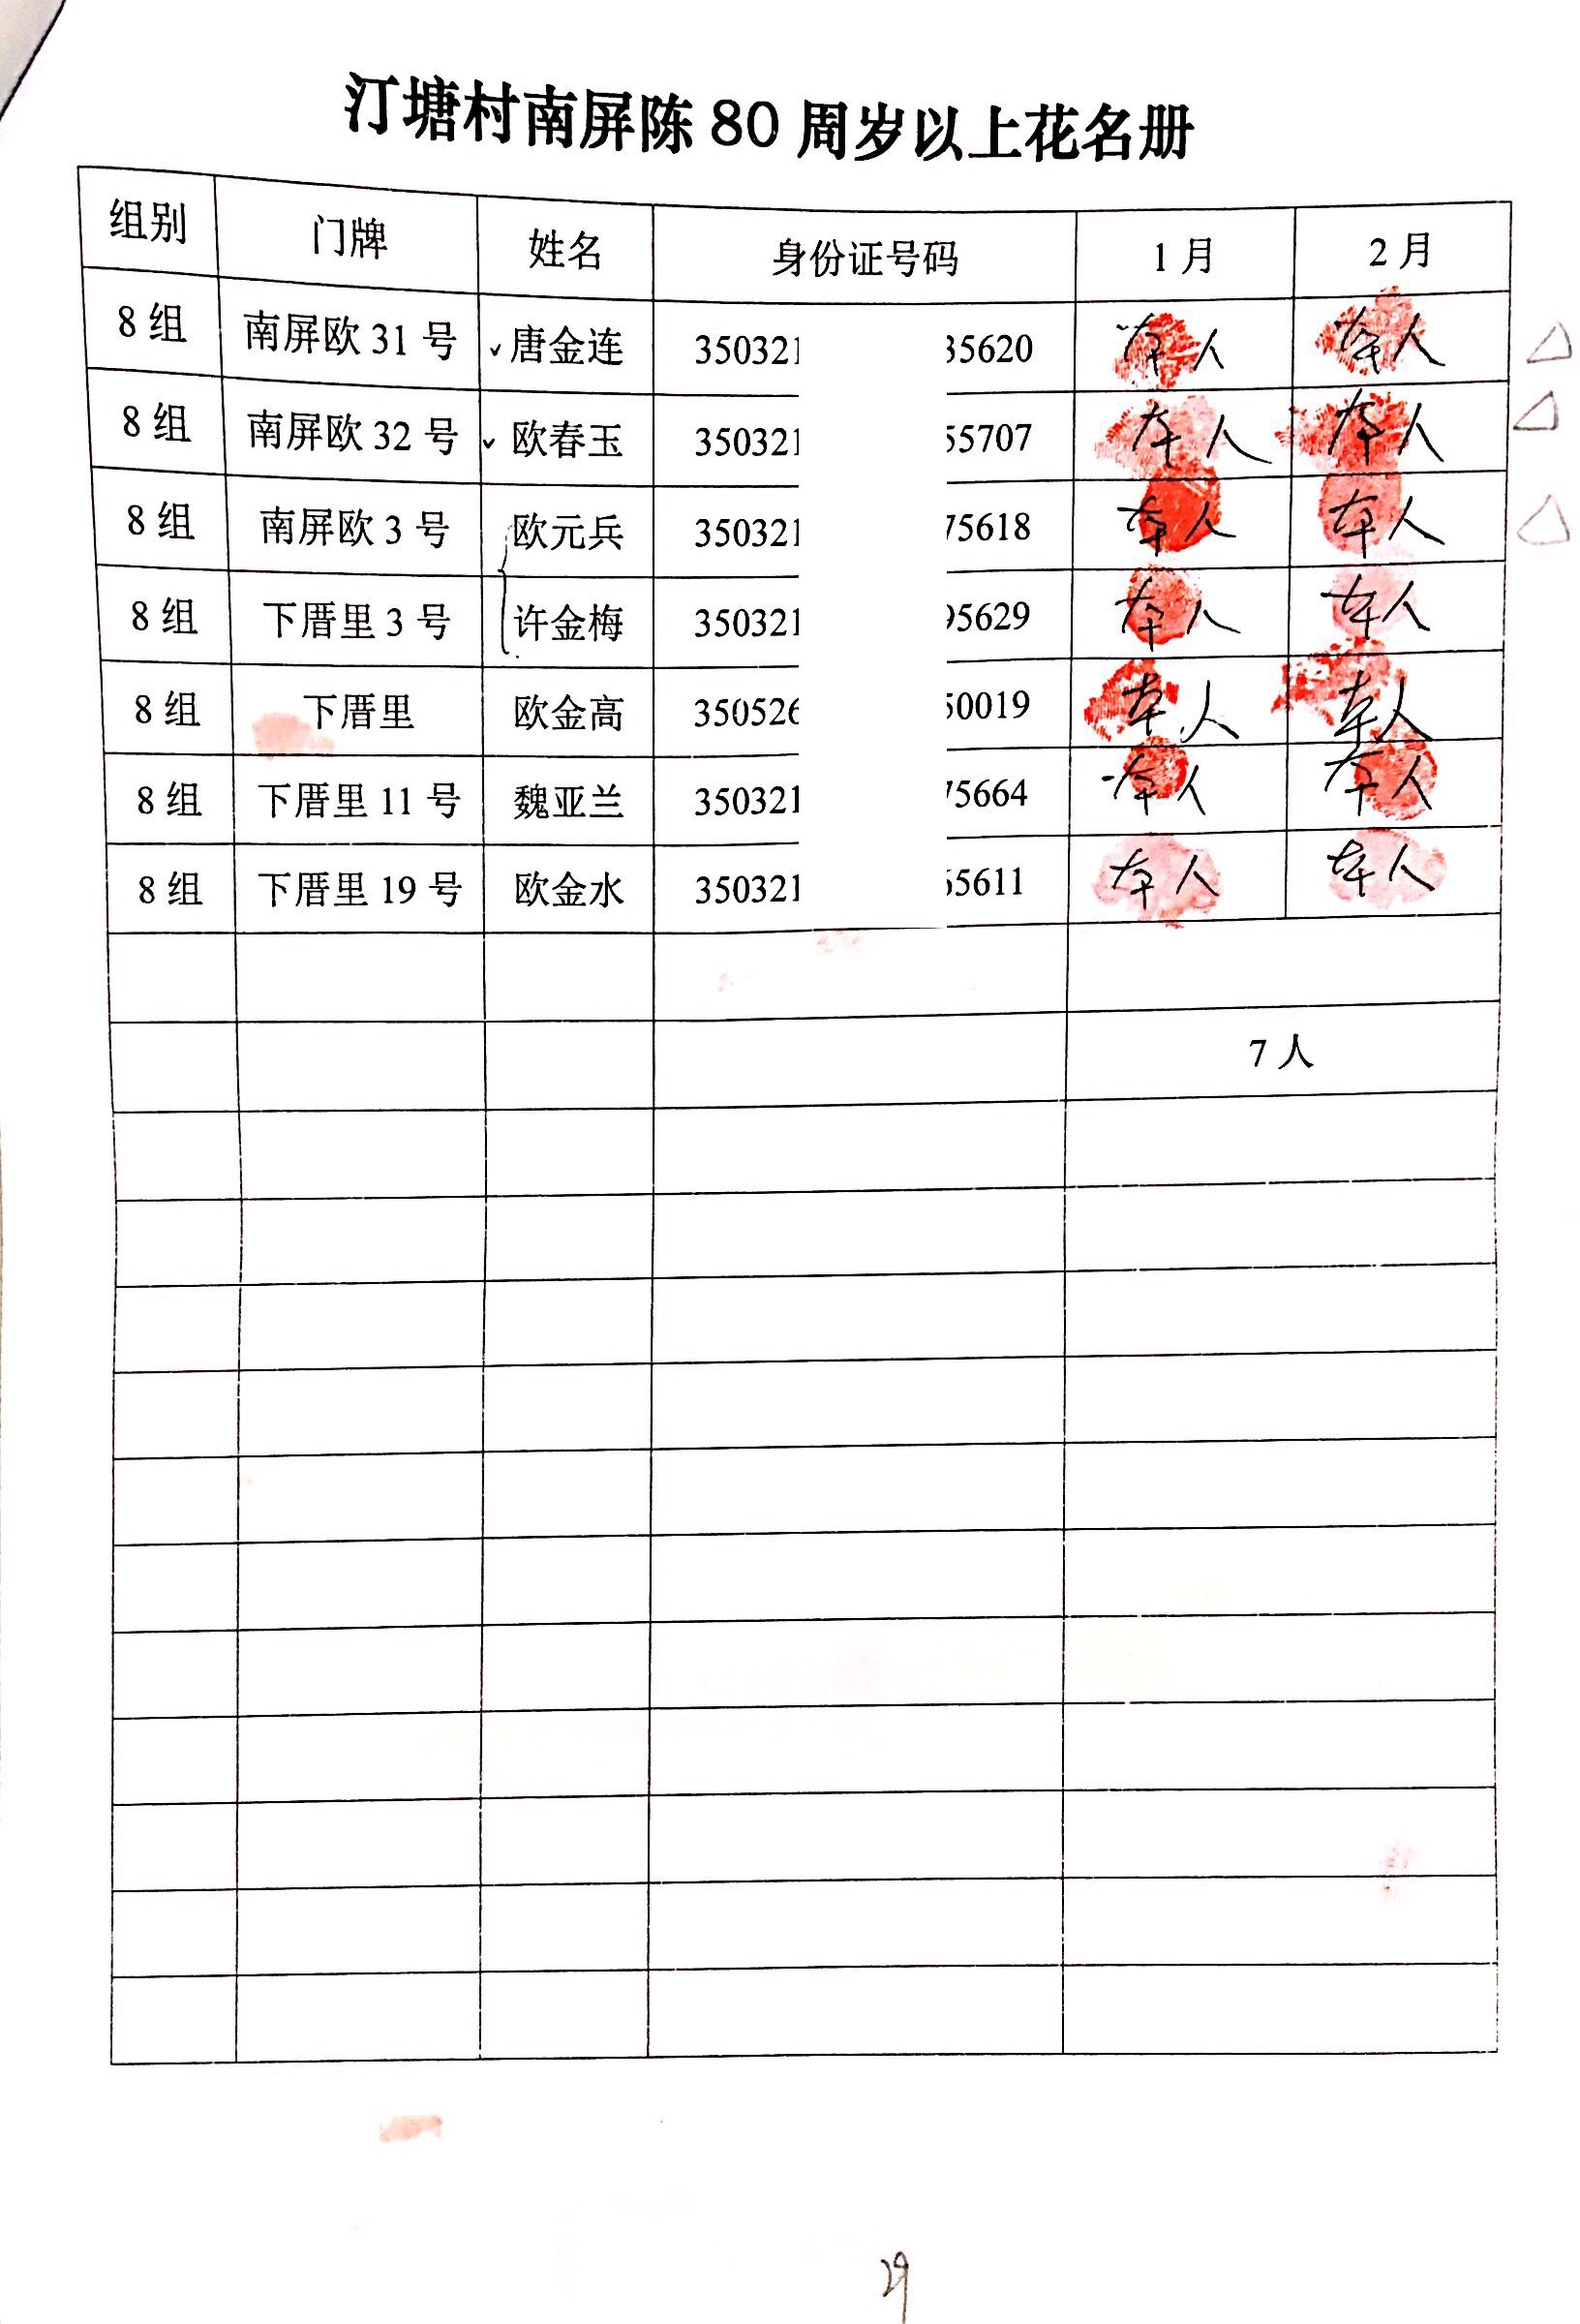 汀塘村南屏陈 80 周岁以上花名册
组别 门牌 姓名 身份证号码 1 月 2 月
8 组 南屏欧 31 号 ✓ 唐金连 350321 35620 本人 本人 △
8 组 南屏欧 32 号 ✓ 欧春玉 350321 55707 本人 本人 △
8 组 南屏欧 3 号 欧元兵 350321 75618 本人 本人 △
8 组 下厝里 3 号 许金梅 350321 95629 本人 本人
8 组 下厝里 欧金高 350526 50019 本人 本人
8 组 下厝里 11 号 魏亚兰 350321 75664 本人 本人
8 组 下厝里 19 号 欧金水 350321 65611 本人 本人
7 人
29